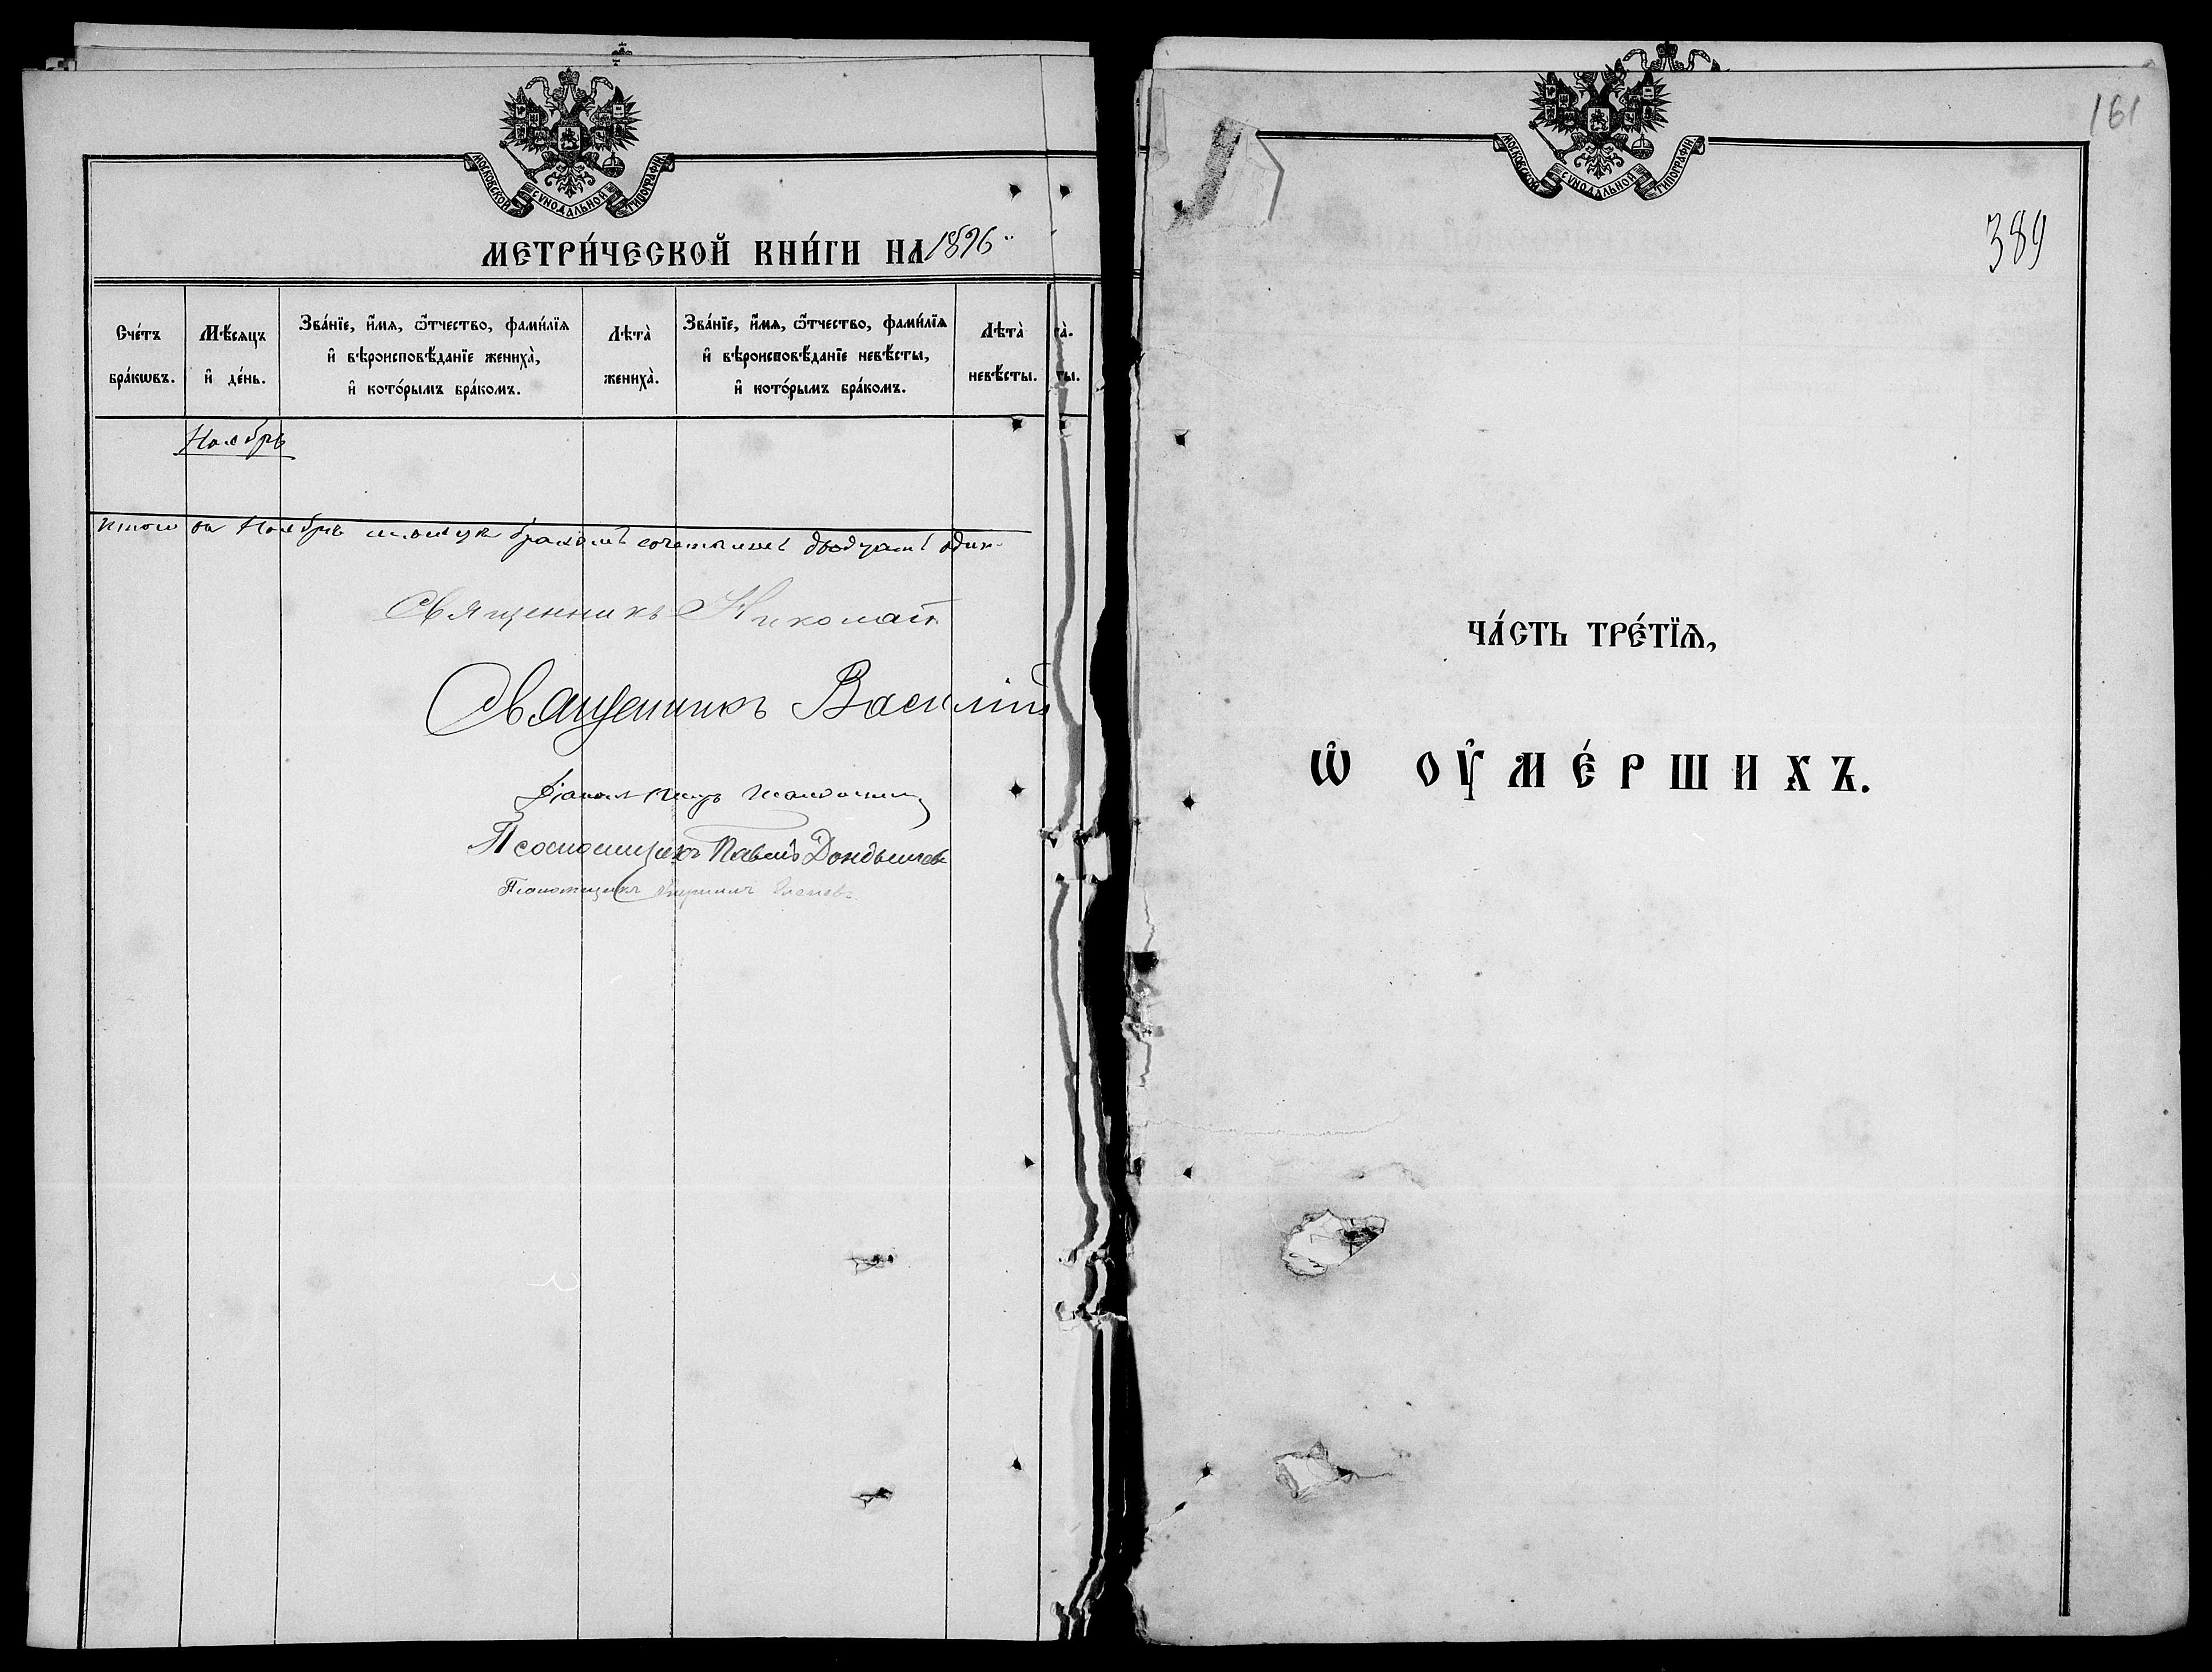 МОСКОВСКОЙ СУНОДАЛЬНОЙ ТИПОГРАФІИ
МЕТРИ́ЧЕСКОЙ КНИ́ГИ НА 1896
Сче́тъ бра́кѡвъ.
Мѣ́сяцъ и҆ де́нь.
Зва́нїе, и҆́мя, ѻ҆́тчество, фами́лїя
и҆ вѣроисповѣ́данїе жениха̀,
и҆ кото́рымъ бра́комъ.
Лѣта̀ жениха̀.
Зва́нїе, и҆́мя, ѻ҆́тчество, фами́лїя
и҆ вѣроисповѣ́данїе невѣ́сты,
и҆ кото́рымъ бра́комъ.
Лѣта̀ невѣ́сты.
та̀.
ты.
Ноябрь
Итого за Ноябрь мѣсяцъ бракомъ сочетанiе двадцать один
Священникъ Николай
Священникъ Василій
Псаломщикъ Павелъ
Псаломщикъ
161
МОСКОВСКОЙ СУНОДАЛЬНОЙ ТИПОГРАФІИ
389
ЧА́СТЬ ТРЕ́ТЇѦ,
Ѡ҆ ОУ҆МЕ́РШИХЪ.